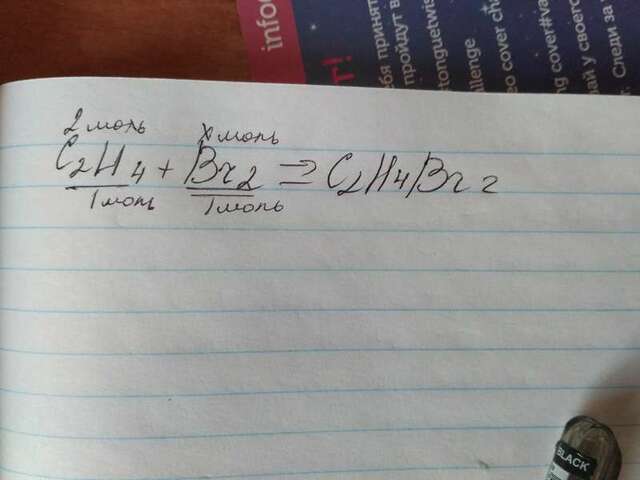 infoc
т!
бя принят
пройдут в
tonguetwis
allenge
eo cover cha
ng cover#va
ай у своего
. Следи за
2 моль x моль
C2H4 + Br2 => C2H4Br2
1 моль 1 моль
BLACK